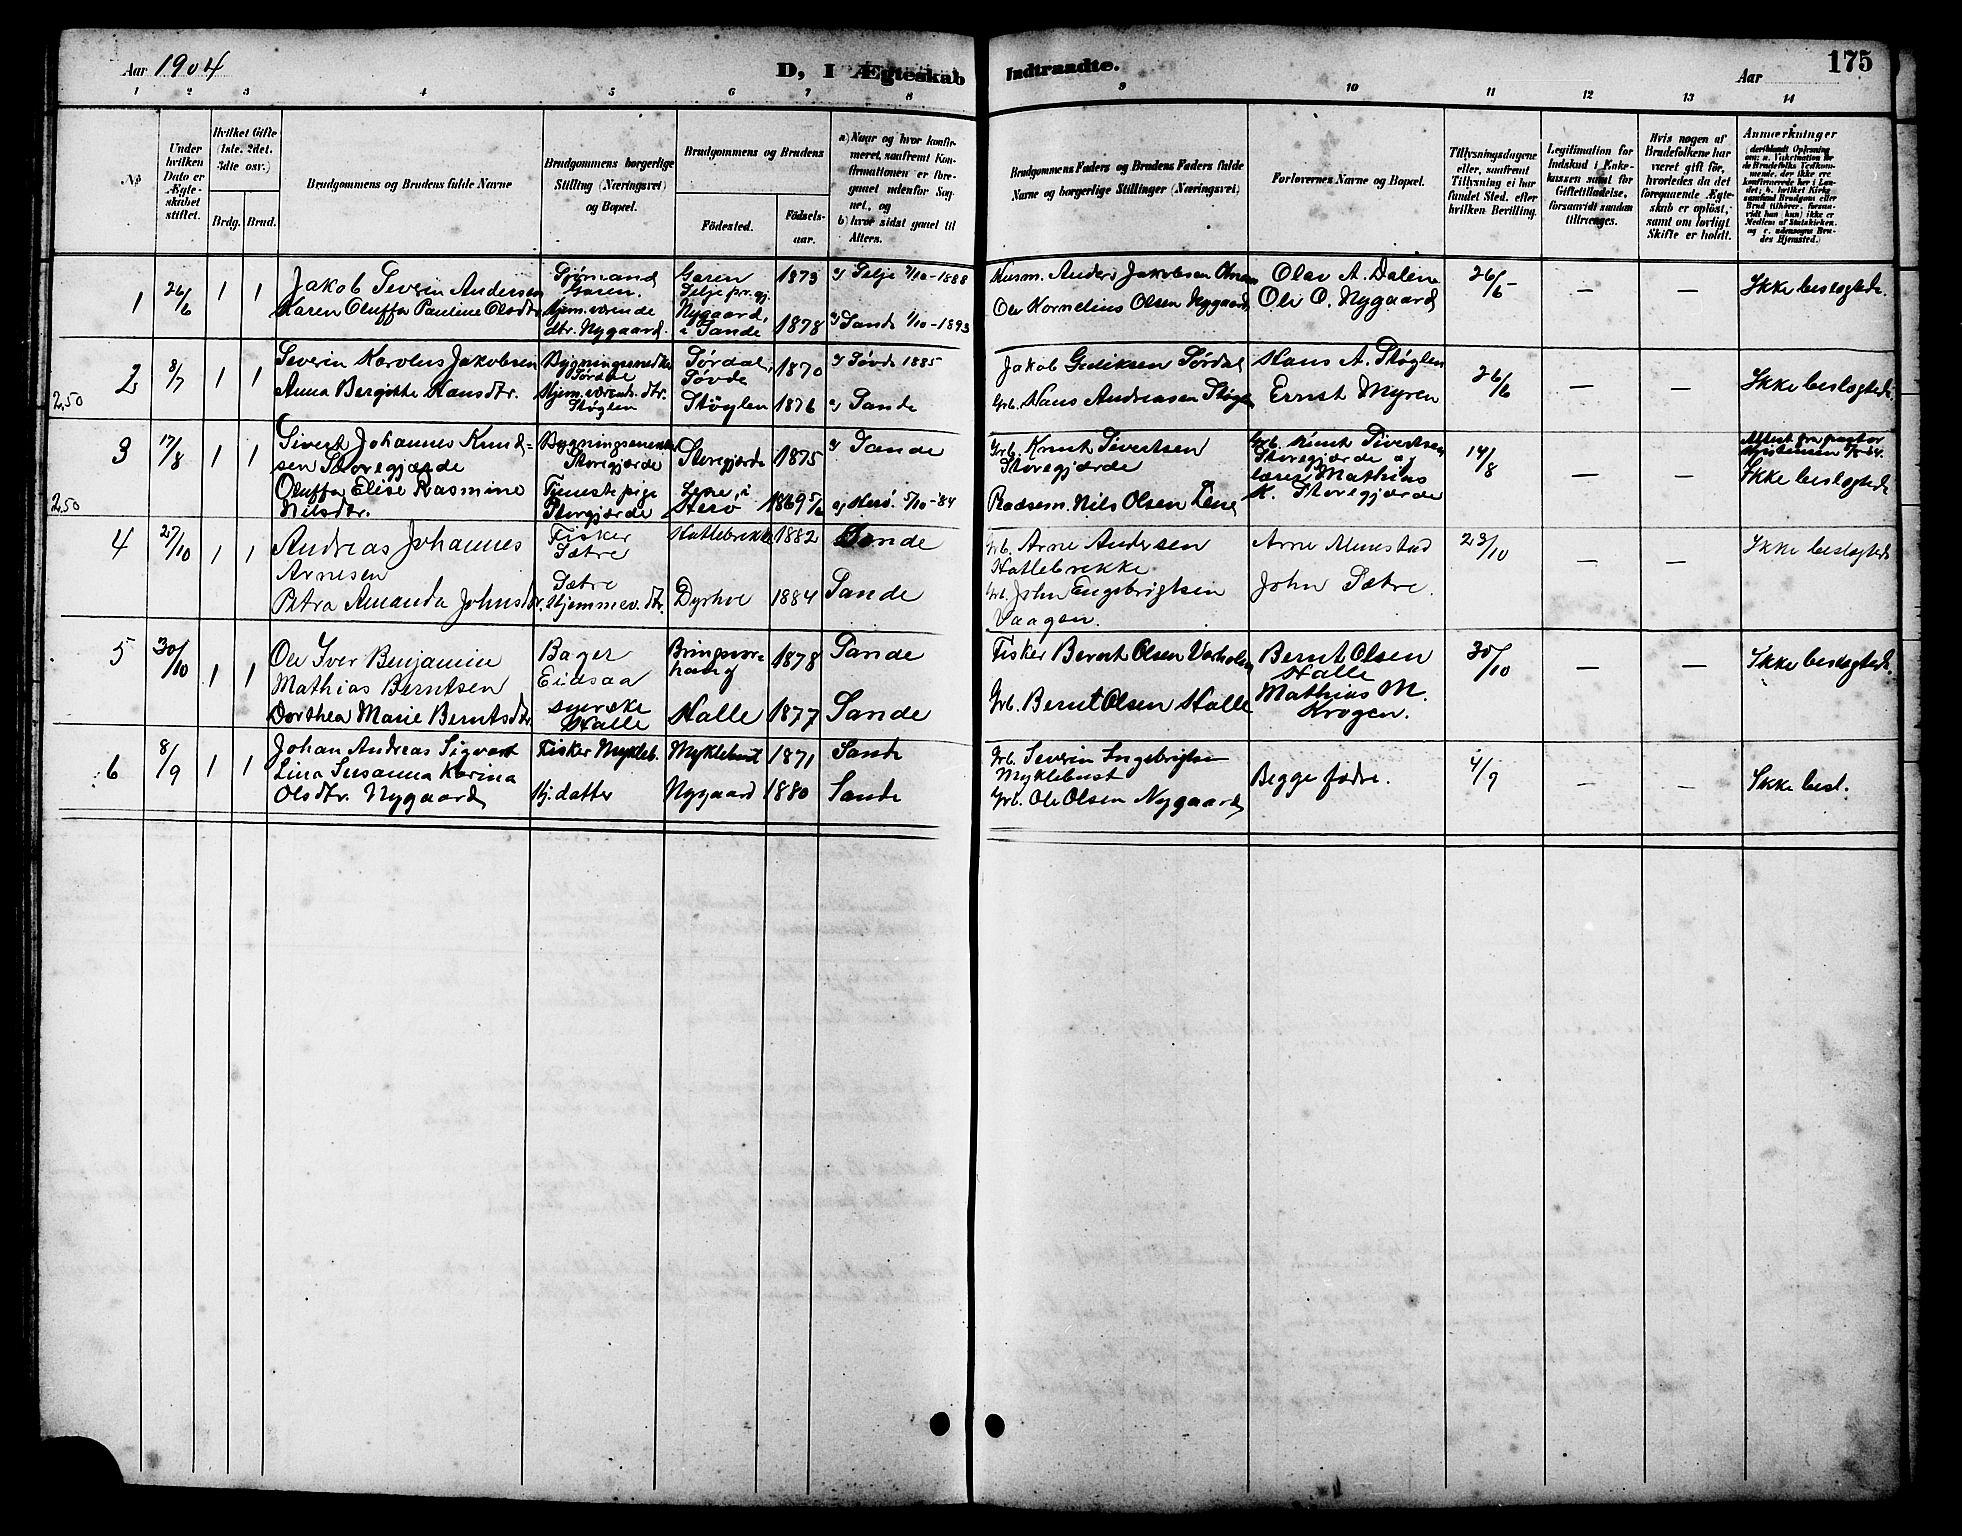 Aar 1904
D, I Ægteskab Indtraadte.
Aar
175
1 2 3 4 5 6 7 8 9 10 11 12 13 14
No
Under hvilken Dato er Ægteskabet stiftet.
Hvilket Gifte (1ste. 2det. 3die osv.)
Brdg. Brud.
Brudgommens og Brudens fulde Navne
Brudgommens borgerlige Stilling (Næringsvei) og Bopæl.
Brudgommens og Brudens
Fødested.
Fødselsaar.
a) Naar og hvor konfirmeret, samfremt Konfirmationen er foregaaet udenfor Sognet, og
b) hvor sidst gaaet til Alters.
Brudgommens Faders og Brudens Faders fulde Navne og borgerlige Stillinger (Næringsvei)
Forlovernes Navne og Bopæl.
Tillysningsdagene eller, samfremt Tillysning ei har fundet Sted. efter hvilken Bevilling.
Legitimation for Indskud i Enkekassen samt for Giftetilladelse, forsaavidt saadan tiltrænges.
Hvis nogen af Brudefolkene har været gift før, hvorledes da det foregaaende Ægteskab er opløst, samt om lovligt Skifte er holdt.
Anmærkninger
1 26/6 1 1
Jakob Severin Andersen
Karen Oluffa Pauline Olsdtr.
Sømand Garen.
Hjem.værende dtr. Nygaard.
Garen Selje pr.gj.
Nygaard, i Sande
1873
1878
a) Selje 7/10-1888
a) Sande 1/10-1893
Husm. Anders Jakobsen
Ole Kornelius Olsen Nygaard
Olav A. Dalen
Ole O. Nygaard
26/6 – – –
Ikke beslegtede.
2 8/7 1 1
2,50
Severin Karolus Jakobsen
Anna Bergitte Hansdtr.
Bygningssnedker Sørdal
Hjem.værende dtr. Støylen
Sørdal, Søvde
Støylen
1870
1876
a) Søvde 1885
a) Sande
Jakob Gudiksen Sørdal
Grb. Hans Andreasen Støylen
Hans A. Støylen
Ernst Myren
26/6 – –
Ikke beslegtede.
3 17/8 1 1
2,50
Sivert Johannes Knudsen Storegjærde
Oluffa Elise Rasmine Nilsdtr.
Storegjærde
Tjenestepige Storegjærde
Storegjærde
Lene, i Herø
1875
1869 5/6
a) Sande
a) Herø. 5/10-84
Grb. Knut Sivertsen Storegjærde
Baadsm. Nils Olsen Lene
Grb. Knut Sivertsen Storegjærde og
lærer Mathias K. Storegjærde
14/8 – –
Attest fra pastor
Ikke beslegtede
4 27/10 1 1
Andreas Johannes Arnesen
Petra Amanda Johnsdtr.
Fisker Sætre
Sætre Hjemmev. dtr.
Hatlebrekke
Dyrhol
1882
1884
Sande
Sande
Grb. Arne Andersen Hatlebrekke
Grb. John Engebrigtsen Vaagen.
Arne Almestad
John Sætre.
23/10 – –
Ikke beslegtede
5 30/10 1 1
Ole Iver Benjamin Mathias Berntsen
Dorthea Marie Berntsdtr.
Bager Eidsaa
syerske Halle
Bringsvorhaug
Halle
1878
1877
Sande
Sande
Fisker Bernt Olsen Vorholm
Grb. Bernt Olsen Halle
Bernt Olsen Halle
Mathias M. Krogen.
30/10 – –
Ikke beslegtede.
6 8/9 1 1
Johan Andreas Sigvart
Lina Susanna Karina Olsdtr. Nygaard
Fisker Mykleb.
Hj.datter
Myklebust
Nygaard
1871
1880
Sande
Sande
Grb. Severin Ingebrigtsen Myklebust
Grb. Ole Olsen Nygaard
Begge fædre.
4/9 – –
Ikke besl.